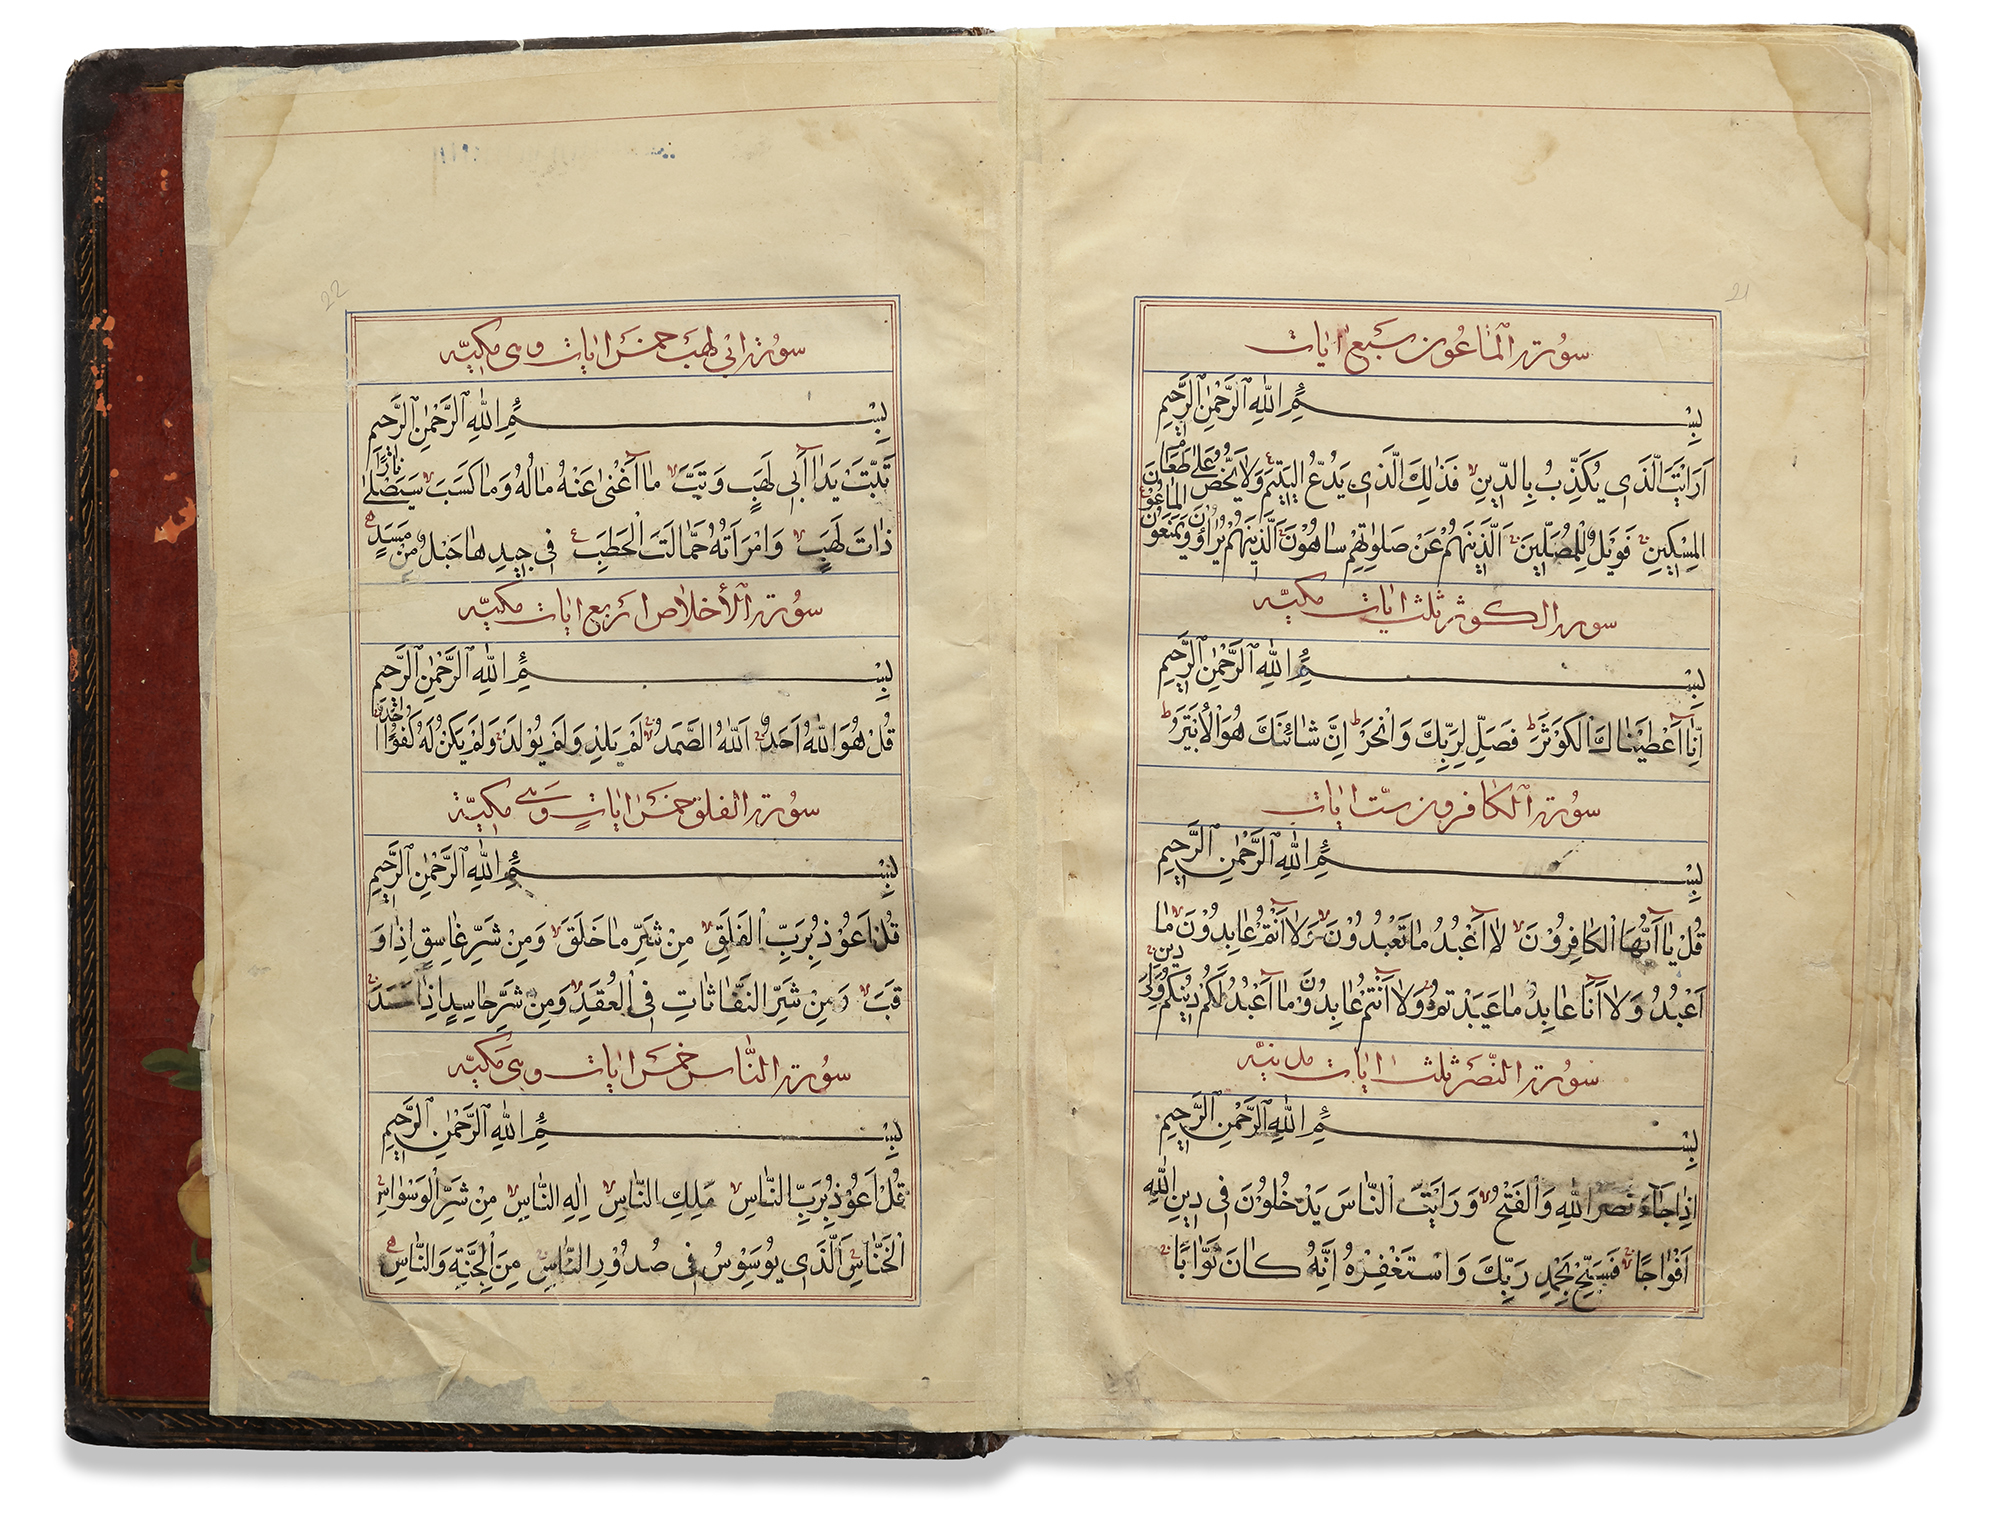 21
سورة الماعون سبع ايات
بِسْمِ اللهِ الرَّحْمٰنِ الرَّحِيمِ
اَرَاَيْتَ الَّذى يُكَذِّبُ بِالدِّينِ فَذٰلِكَ الَّذى يَدُعُّ الْيَتِيمَ وَلَا يَحُضُّ عَلٰى طَعَامِ
الْمِسْكِينِ فَوَيْلٌ لِلْمُصَلِّينَ اَلَّذِينَ هُمْ عَنْ صَلٰوتِهِمْ سَاهُونَ اَلَّذِينَ هُمْ يُرَاؤُنَ وَيَمْنَعُونَ الْمَاعُونَ
سورة الكوثر ثلث ايات مكيّه
بِسْمِ اللهِ الرَّحْمٰنِ الرَّحِيمِ
اِنَّا اَعْطَيْنَاكَ الْكَوْثَرَ فَصَلِّ لِرَبِّكَ وَانْحَرْ اِنَّ شَانِئَكَ هُوَ الْاَبْتَرُ
سورة الكافرون ستّ ايات
بِسْمِ اللهِ الرَّحْمٰنِ الرَّحِيمِ
قُلْ يَا اَيُّهَا الْكَافِرُوْنَ لَا اَعْبُدُ مَا تَعْبُدُوْنَ وَلَا اَنْتُمْ عَابِدُوْنَ مَا
اَعْبُدُ وَلَا اَنَا عَابِدٌ مَا عَبَدْتُمْ وَلَا اَنْتُمْ عَابِدُوْنَ مَا اَعْبُدُ لَكُمْ دِينُكُمْ وَلِىَ دِينِ
سورة النّصر ثلث ايات مدنيّه
بِسْمِ اللهِ الرَّحْمٰنِ الرَّحِيمِ
اِذَا جَاءَ نَصْرُ اللهِ وَالْفَتْحُ وَرَاَيْتَ النَّاسَ يَدْخُلُوْنَ فى دِينِ اللهِ
اَفْوَاجًا فَسَبِّحْ بِحَمْدِ رَبِّكَ وَاسْتَغْفِرْهُ اِنَّهُ كَانَ تَوَّابًا
22
سورة ابى لهب خمس ايات وهى مكيّه
بِسْمِ اللهِ الرَّحْمٰنِ الرَّحِيمِ
تَبَّتْ يَدَا اَبى لَهَبٍ وَتَبَّ مَا اَغْنٰى عَنْهُ مَالُهُ وَمَا كَسَبَ سَيَصْلٰى نَارًا
ذَاتَ لَهَبٍ وَامْرَاَتُهُ حَمَّالَتَ الْحَطَبِ فى جِيدِهَا حَبْلٌ مِنْ مَسَدٍ
سورة الأخلاص اربع ايات مكيّه
بِسْمِ اللهِ الرَّحْمٰنِ الرَّحِيمِ
قُلْ هُوَ اللهُ اَحَدٌ اَللهُ الصَّمَدُ لَمْ يَلِدْ وَلَمْ يُوْلَدْ وَلَمْ يَكُنْ لَهُ كُفُوًا اَحَدٌ
سورة الفلق خمس اياتٍ وهى مكيّة
بِسْمِ اللهِ الرَّحْمٰنِ الرَّحِيمِ
قُلْ اَعُوْذُ بِرَبِّ الْفَلَقِ مِنْ شَرِّ مَا خَلَقَ وَمِنْ شَرِّ غَاسِقٍ اِذَا وَ
قَبَ وَمِنْ شَرِّ النَّفَّاثَاتِ فِى الْعُقَدِ وَمِنْ شَرِّ حَاسِدٍ اِذَا حَسَدَ
سورة النّاس خمس ايات وهى مكيّه
بِسْمِ اللهِ الرَّحْمٰنِ الرَّحِيمِ
قُلْ اَعُوْذُ بِرَبِّ النَّاسِ مَلِكِ النَّاسِ اِلٰهِ النَّاسِ مِنْ شَرِّ الْوَسْوَاسِ
الْخَنَّاسِ اَلَّذى يُوَسْوِسُ فى صُدُوْرِ النَّاسِ مِنَ الْجِنَّةِ وَالنَّاسِ